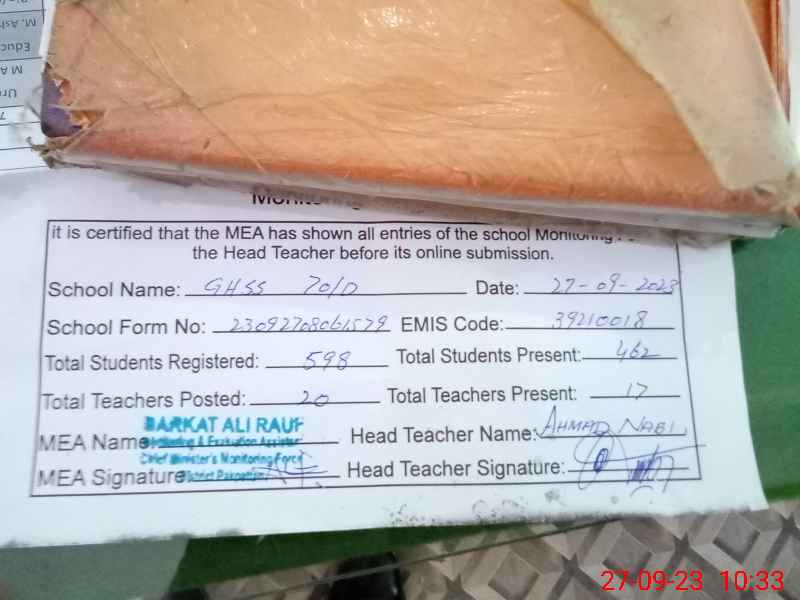 M. Ash
Educ
M A
it is certified that the MEA has shown all entries of the school Monitoring
the Head Teacher before its online submission.
School Name: GHSS 70/D Date: 27-09-2023
School Form No: 23092708061579 EMIS Code: 39210018
Total Students Registered: 598 Total Students Present: 462
Total Teachers Posted: 20 Total Teachers Present: 17
MEA Name BARKAT ALI RAUF Head Teacher Name: AHMAD NABI
Monitoring & Evaluation Assistant
Chief Minister's Monitoring Force
MEA Signature District Pakpattan Head Teacher Signature:
27-09-23 10:33